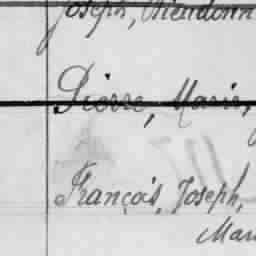 Joseph, Dieudonn
Pierre, Marie,
François, Joseph,
Mar